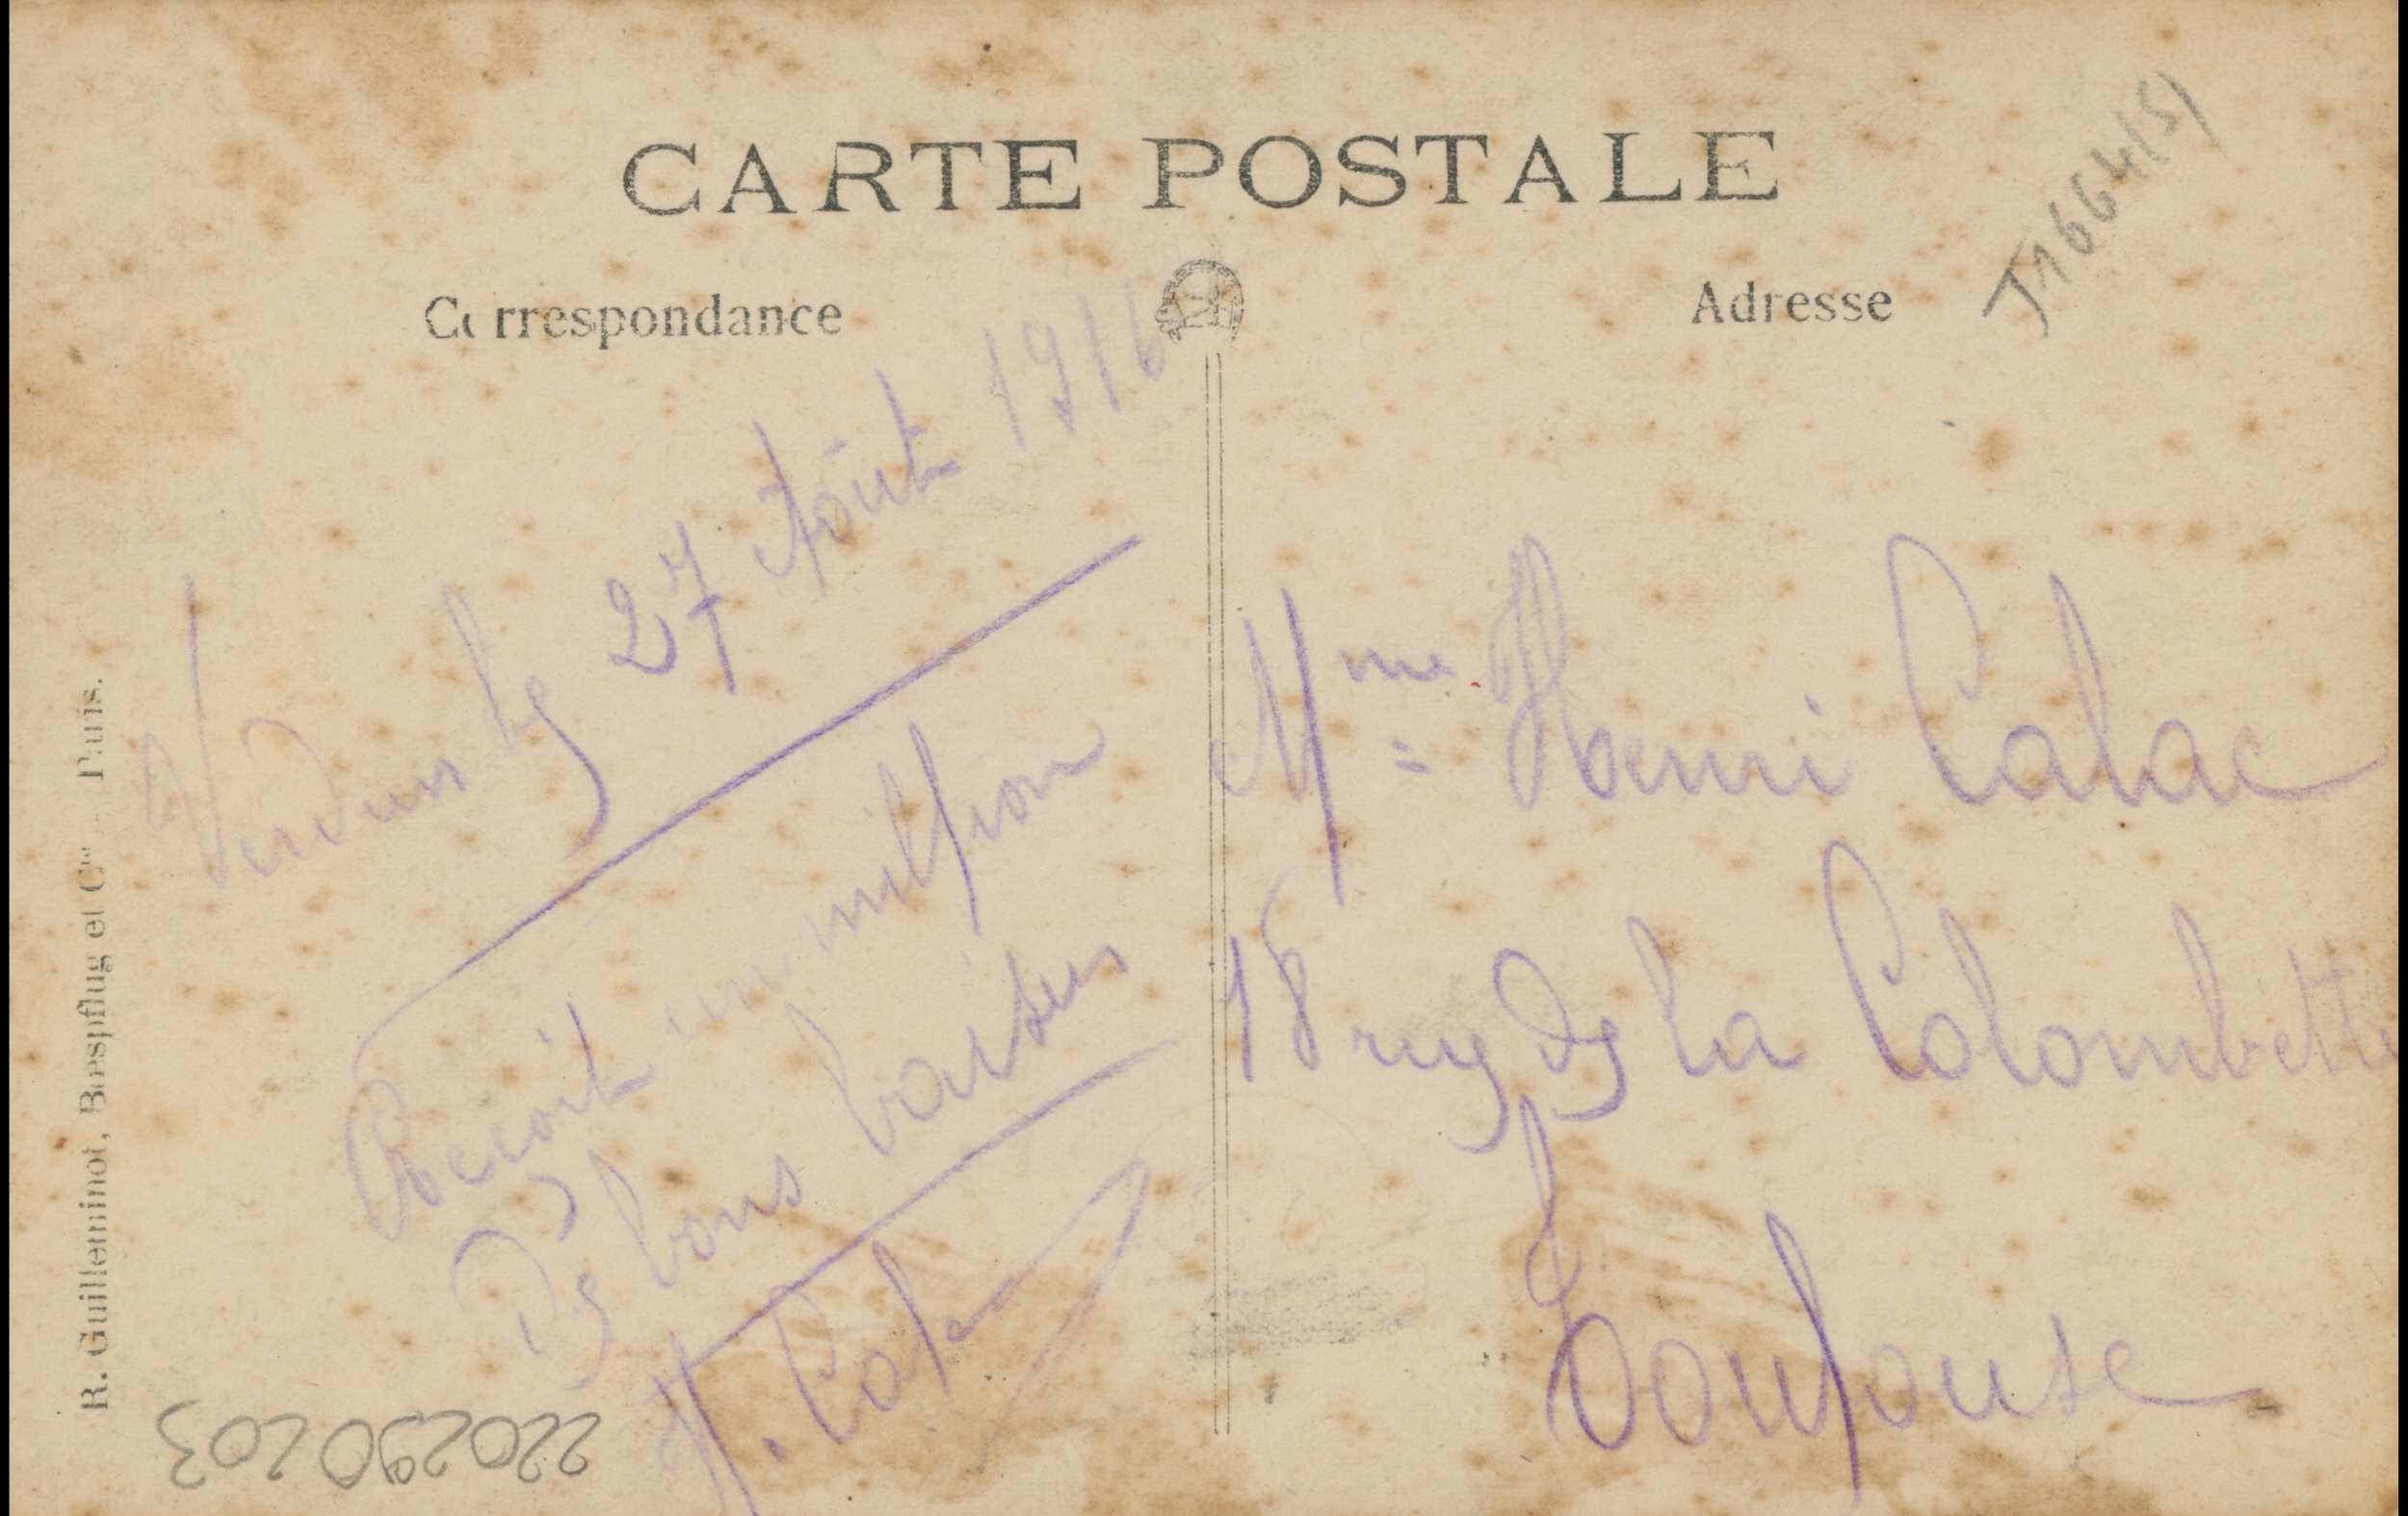 CARTE POSTALE
Correspondance
Adresse
J1664(5)
Verdun le 27 Août 1916
Reçoit un million
De bons baisers
H. Calac
Mme Henri Calac
18 rue de la Colombette
Toulouse
R. Guilleminot, Bœspflug et Cie Paris.